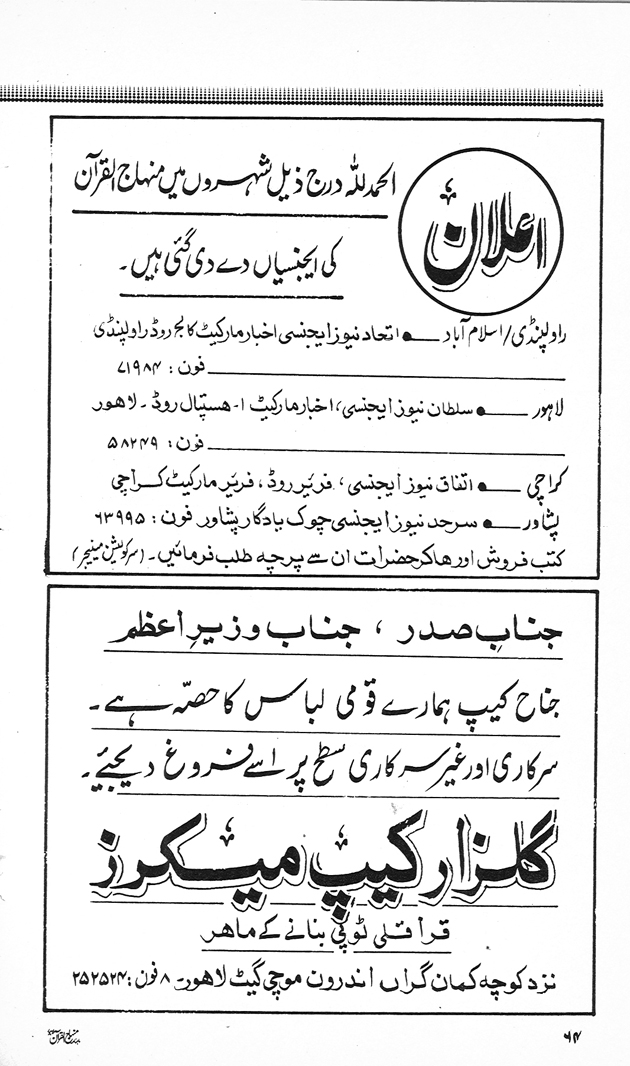 اعلان
الحمد للہ درج ذیل شہروں میں منہاج القرآن
کی ایجنسیاں دے دی گئی ہیں۔
راولپنڈی/اسلام آباد ـــ● اتحاد نیوز ایجنسی اخبار مارکیٹ کالج روڈ راولپنڈی
فون: ۷۱۹۸۴
لاہور ـــ● سلطان نیوز ایجنسی، اخبار مارکیٹ ۱۔ ہسپتال روڈ۔ لاہور
فون: ۵۸۲۴۹
کراچی ـــ● اتفاق نیوز ایجنسی، فریر روڈ، فریر مارکیٹ کراچی
پشاور ـــ● سرحد نیوز ایجنسی چوک یادگار پشاور فون: ۶۳۹۹۵
کتب فروش اور ہاکر حضرات ان سے پرچہ طلب فرمائیں۔ (سرکولیشن مینیجر)
جنابِ صدر، جناب وزیرِ اعظم
جناح کیپ ہمارے قومی لباس کا حصّہ ہے۔
سرکاری اور غیر سرکاری سطح پر اسے فروغ دیجئیے۔
گلزار کیپ میکرز
قراقلی ٹوپی بنانے کے ماہر
نزد کوچہ کمان گراں اندرون موچی گیٹ لاہور ۸ فون: ۲۵۲۵۲۴
۶۴
منہاج القرآن